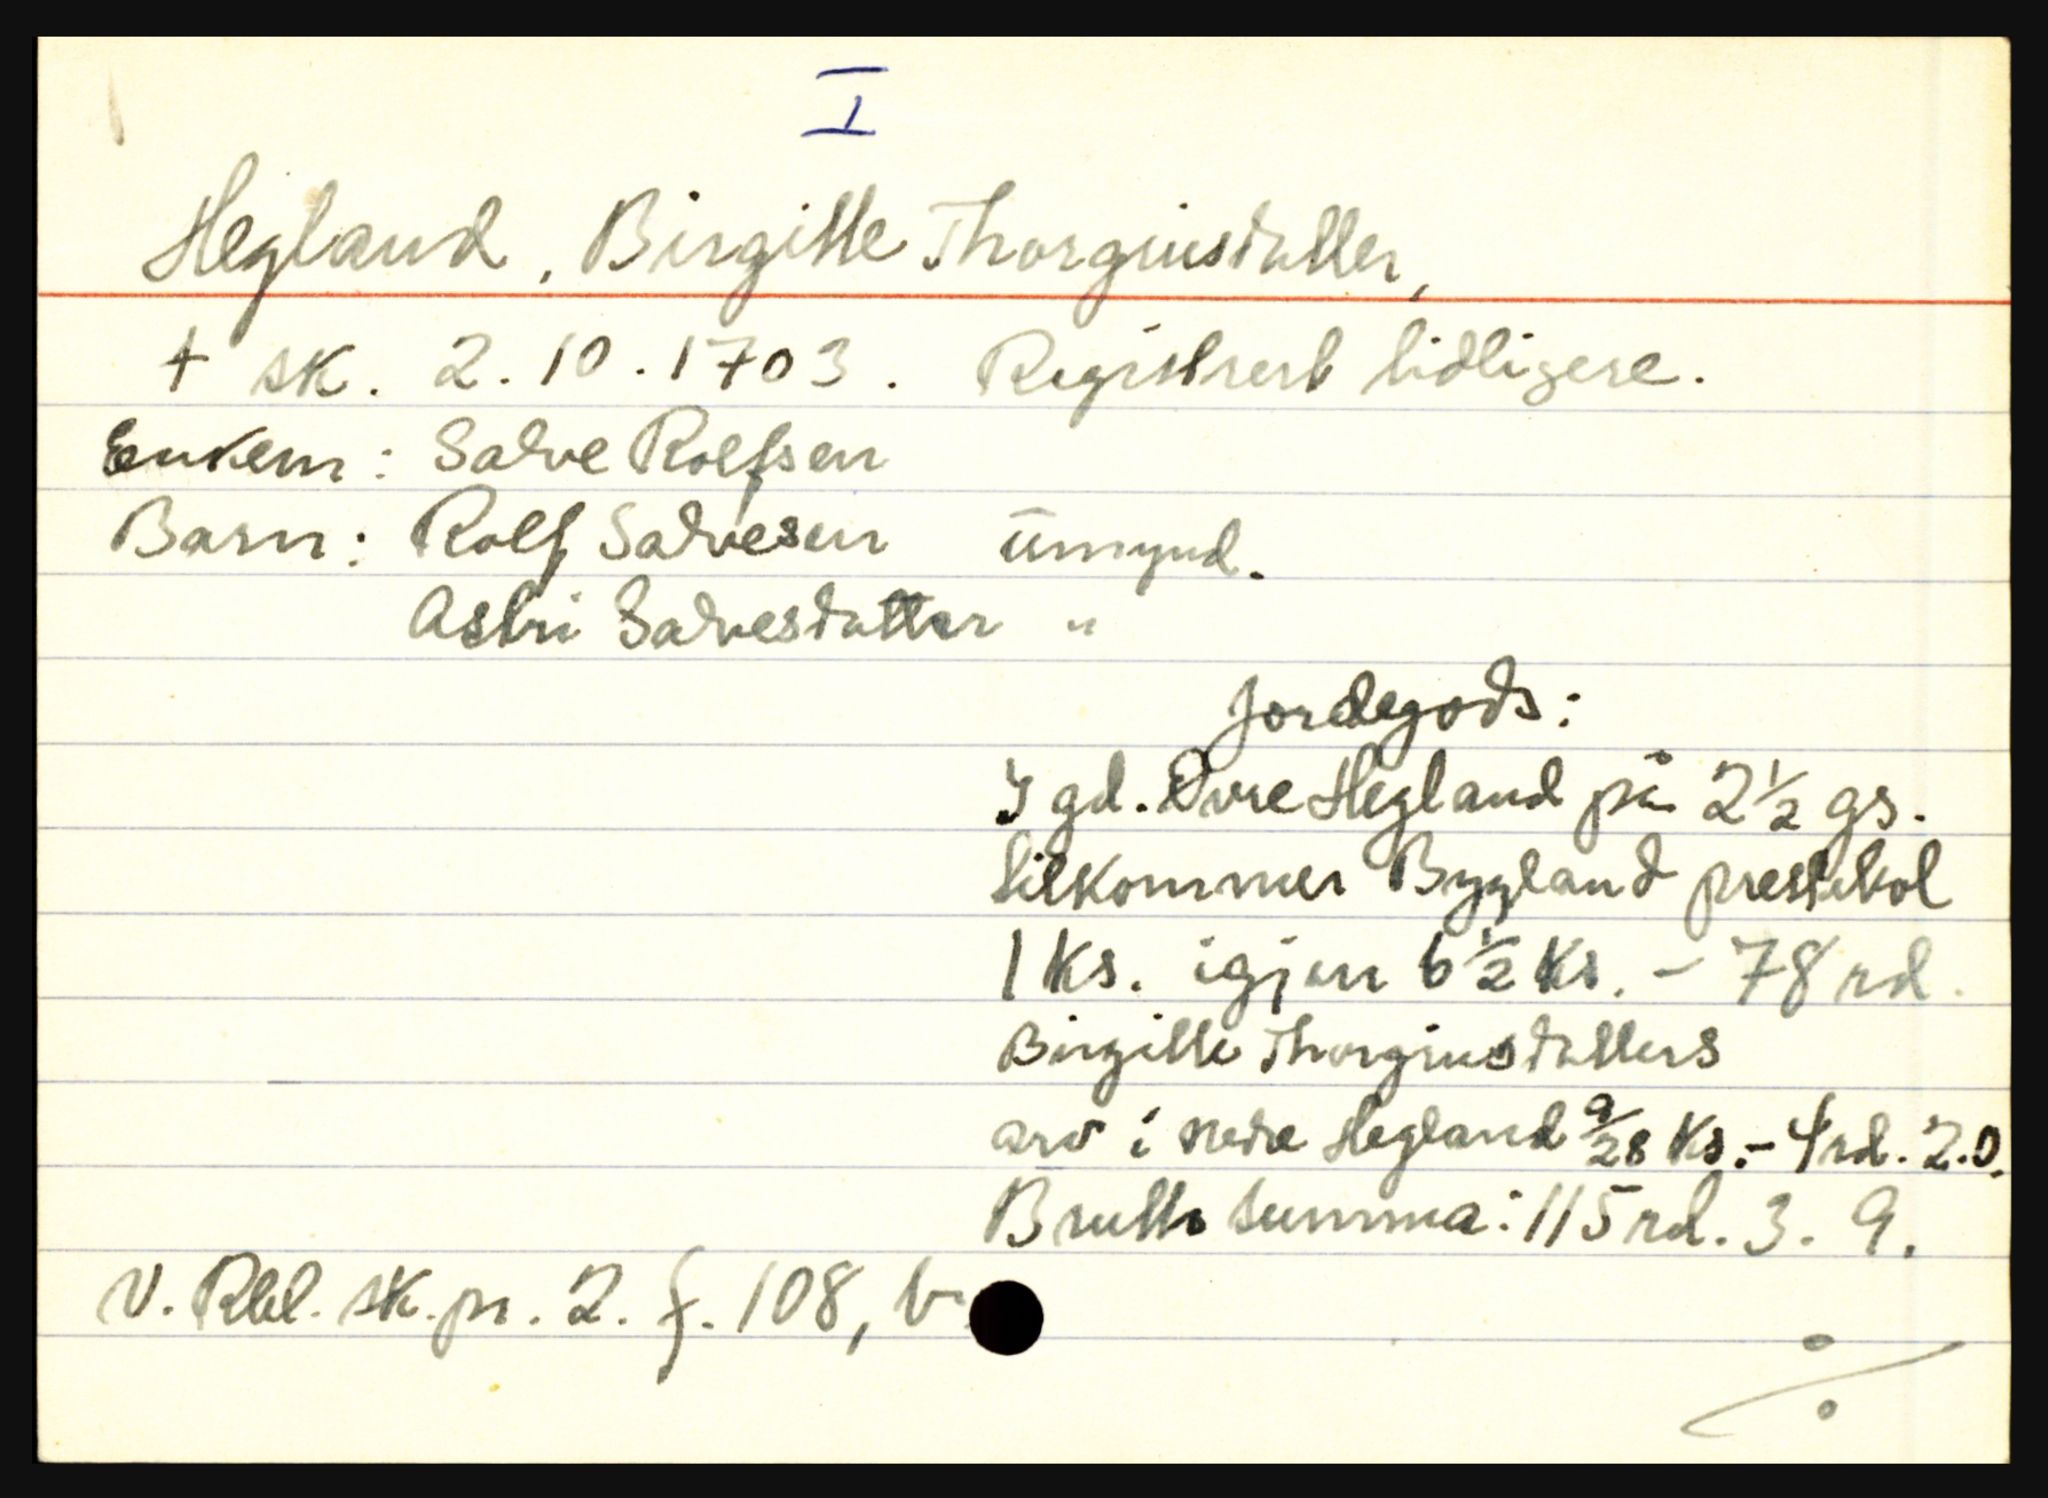 I
Hegland, Birgitte Thorgiusdatter,
† sk. 2.10.1703. Registrert tidligere.
Enkem: Salve Rolfsen
Barn: Rolf Salvesen umynd.
Astri Salvesdatter "
Jordegods:
I gd. Øvre Hegland på 2½ gs.
tilkommer Bygland prestebol
1 ks. igjen 6½ ks. - 78 rd.
Birgitte Thorgiusdatters
arv i nedre Hegland 9/28 ks. - 4 rd. 2.0.
Brutto summa: 115 rd. 3. 9.
V. Rbl. sk. pr. 2. f. 108, b.
./.